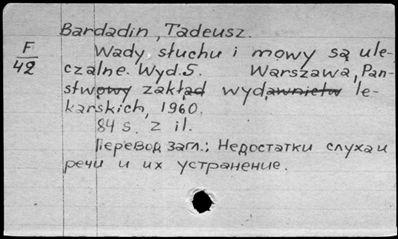 Bardadin, Tadeusz.
F
42
Wady słuchu i mowy są ule-
czalne. Wyd. 5. Warszawa, Pań-
stwowy zakład wydawnictw le-
karskich, 1960.
84 s. z il.
Перевод загл.: Недостатки слуха и
речи и их устранение.